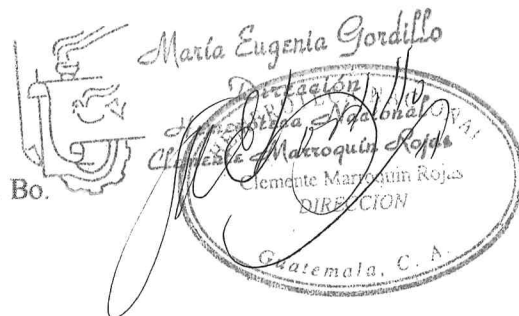 María Eugenia Gordillo
Dirección
Hemeroteca Nacional
Clemente Marroquín Rojas
Bo.
HEMEROTECA NACIONAL
Clemente Marroquín Rojas
DIRECCION
Guatemala, C. A.